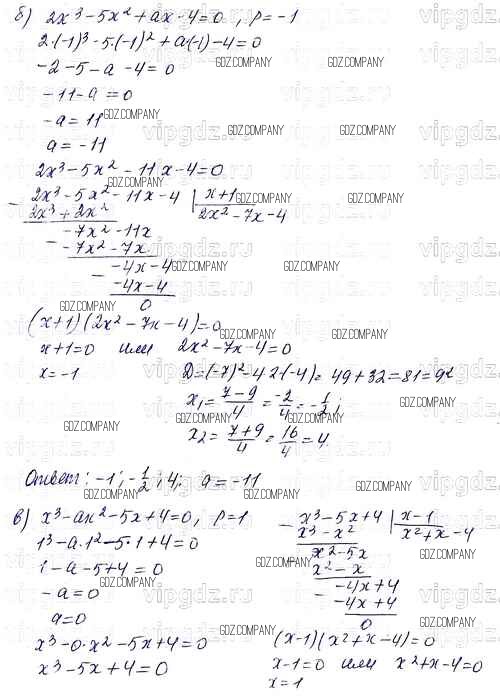 б) 2x³-5x²+ax-4=0, p=-1
2·(-1)³-5·(-1)²+a(-1)-4=0
-2-5-a-4=0
-11-a=0
-a=11
a=-11
2x³-5x²-11x-4=0
2x³-5x²-11x-4 | x+1
2x³+2x² 2x²-7x-4
-7x²-11x
-7x²-7x
-4x-4
-4x-4
0
(x+1)(2x²-7x-4)=0
x+1=0 или 2x²-7x-4=0
x=-1 D=(-7)²-4·2(-4)=49+32=81=9²
x₁=(7-9)/4=-2/4=-1/2;
x₂=(7+9)/4=16/4=4
Ответ: -1; -1/2; 4; a=-11
в) x³-ax²-5x+4=0, p=1
1³-a·1²-5·1+4=0
1-a-5+4=0
-a=0
a=0
x³-0·x²-5x+4=0
x³-5x+4=0
x³-5x+4 | x-1
x³-x² x²+x-4
x²-5x
x²-x
-4x+4
-4x+4
0
(x-1)(x²+x-4)=0
x-1=0 или x²+x-4=0
x=1
GDZ.COMPANY
vipgdz.ru